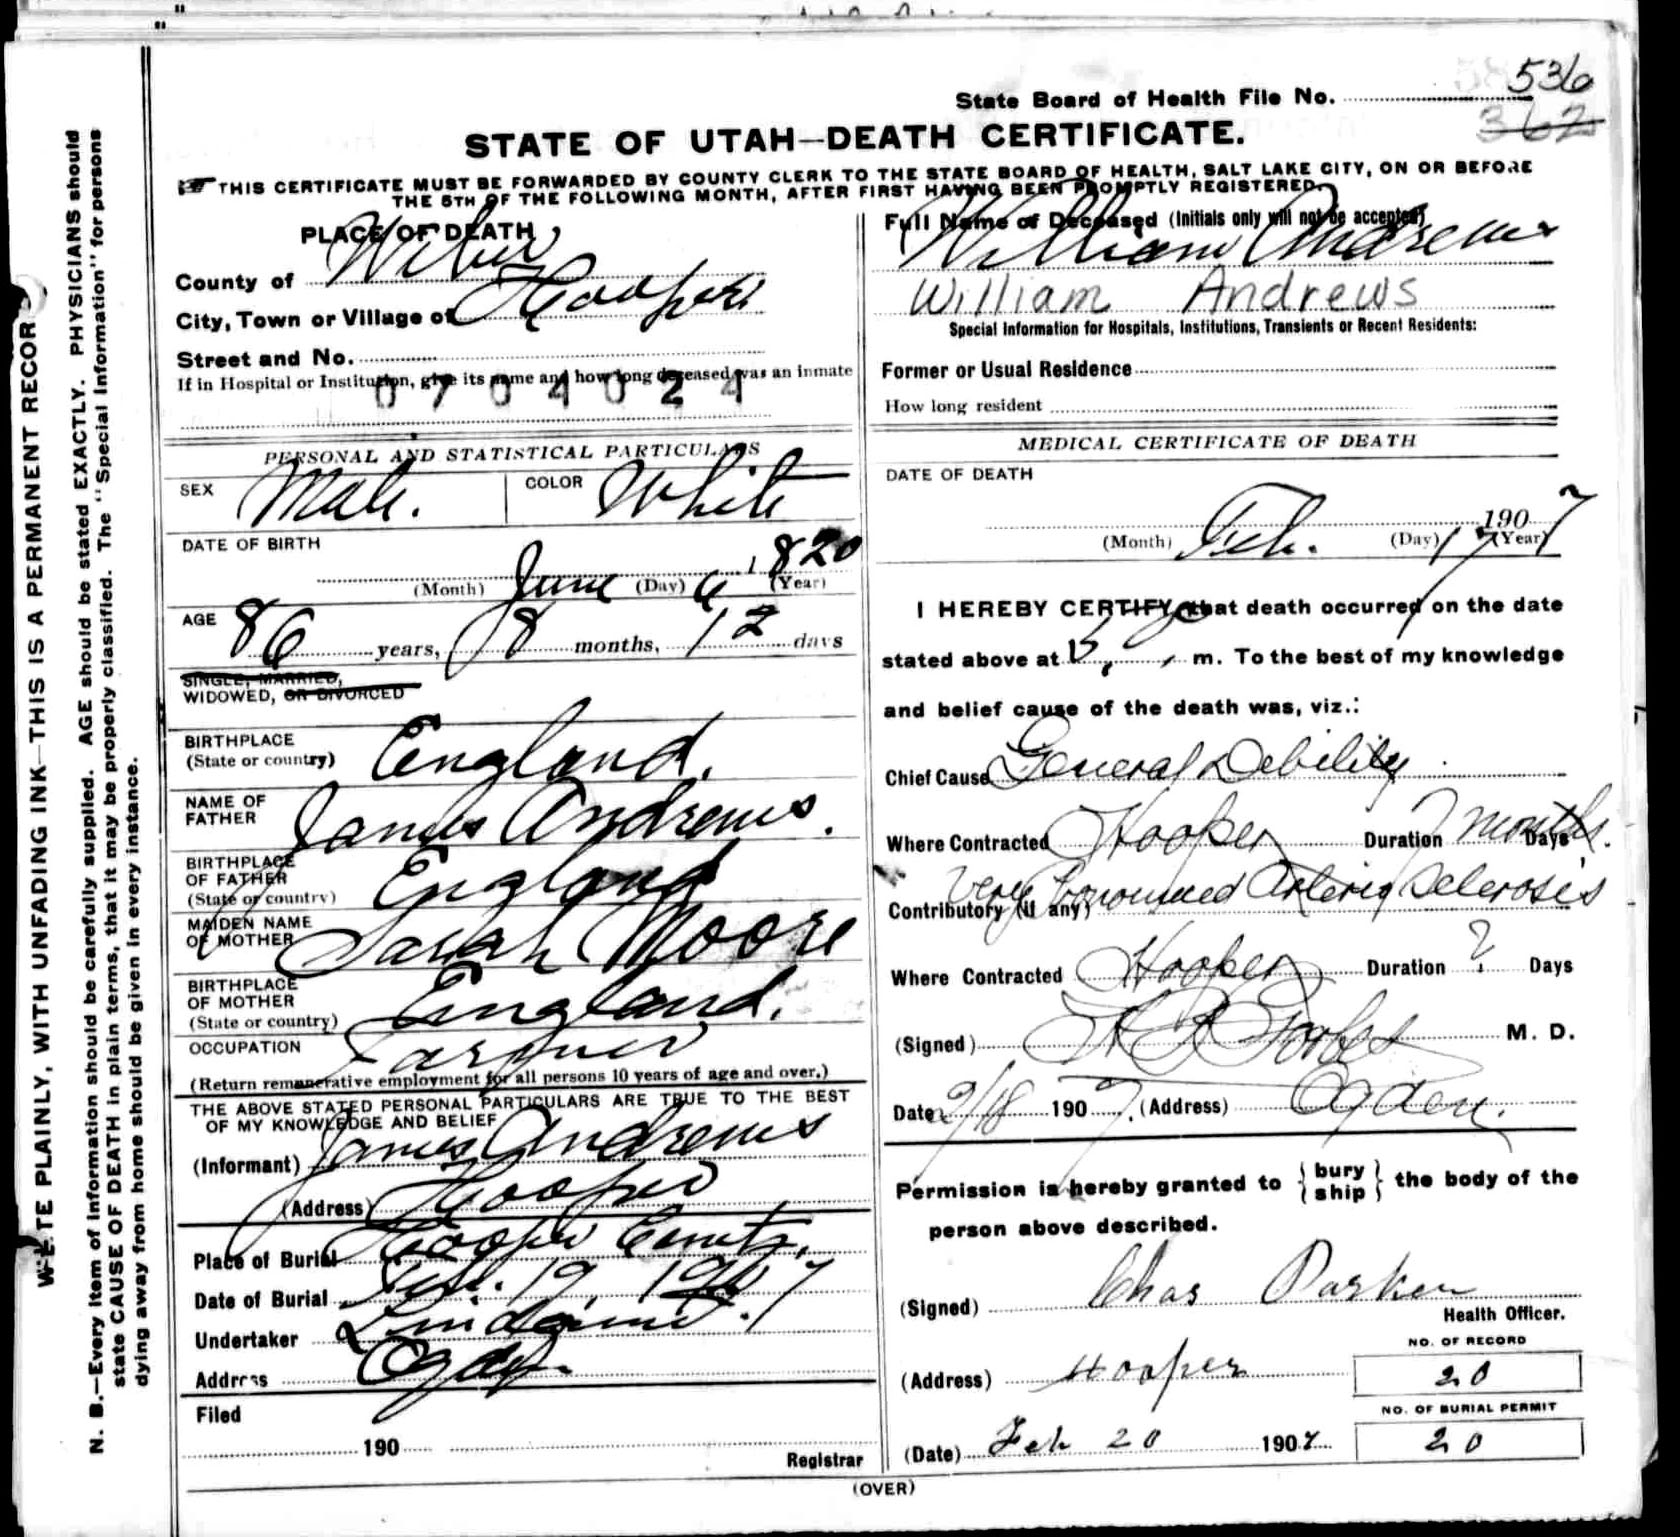 State Board of Health File No. 536
362
STATE OF UTAH—DEATH CERTIFICATE.
THIS CERTIFICATE MUST BE FORWARDED BY COUNTY CLERK TO THE STATE BOARD OF HEALTH, SALT LAKE CITY, ON OR BEFORE
THE 5TH OF THE FOLLOWING MONTH, AFTER FIRST HAVING BEEN PROMPTLY REGISTERED.
PLACE OF DEATH
County of Weber
City, Town or Village of Hooper
Street and No.
If in Hospital or Institution, give its name and how long deceased was an inmate
0704024
PERSONAL AND STATISTICAL PARTICULARS
SEX Male. COLOR White
DATE OF BIRTH
(Month) June (Day) 6 1820 (Year)
AGE 86 years, 8 months, 12 days
SINGLE, MARRIED,
WIDOWED, OR DIVORCED
BIRTHPLACE
(State or country) England.
NAME OF
FATHER James Andrews.
BIRTHPLACE
OF FATHER
(State or country) England
MAIDEN NAME
OF MOTHER Sarah Moore
BIRTHPLACE
OF MOTHER
(State or country) England.
OCCUPATION Farmer
(Return remunerative employment for all persons 10 years of age and over.)
THE ABOVE STATED PERSONAL PARTICULARS ARE TRUE TO THE BEST
OF MY KNOWLEDGE AND BELIEF
(Informant) James Andrews
(Address) Hooper
Place of Burial Hooper Cemetr.
Date of Burial Feb. 19, 1907
Undertaker Lindquist.
Address Ogden
Filed
190
Registrar
Full Name of Deceased (Initials only will not be accepted)
William Andrews
William Andrews
Special Information for Hospitals, Institutions, Transients or Recent Residents:
Former or Usual Residence
How long resident
MEDICAL CERTIFICATE OF DEATH
DATE OF DEATH
(Month) Feb. (Day) 17 1907 (Year)
I HEREBY CERTIFY, that death occurred on the date
stated above at m. To the best of my knowledge
and belief cause of the death was, viz.:
Chief Cause General Debility
Where Contracted Hooper Duration months. Days
Very Pronounced Arterio Sclerosis
Contributory (if any)
Where Contracted Hooper Duration ? Days
(Signed) M. D.
Date 2/18 1907. (Address) Ogden.
Permission is hereby granted to { bury ship } the body of the
person above described.
(Signed) Chas Parker
Health Officer.
(Address) Hooper
NO. OF RECORD
20
NO. OF BURIAL PERMIT
20
(Date) Feb 20 1907
(OVER)
WRITE PLAINLY, WITH UNFADING INK—THIS IS A PERMANENT RECORD
N. B.—Every item of information should be carefully supplied. AGE should be stated EXACTLY. PHYSICIANS should
state CAUSE OF DEATH in plain terms, that it may be properly classified. The "Special Information" for persons
dying away from home should be given in every instance.